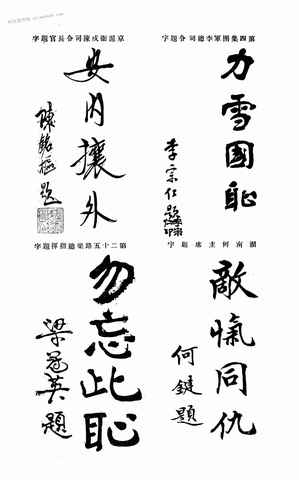 第四集團軍李總司令題字
力雪國恥
李宗仁題
京滬衛戍陳司令長官題字
安内攘外
陳銘樞題
湖南何主席題字
敵愾同仇
何鍵題
第二十五路梁總指揮題字
勿忘此恥
梁冠英題